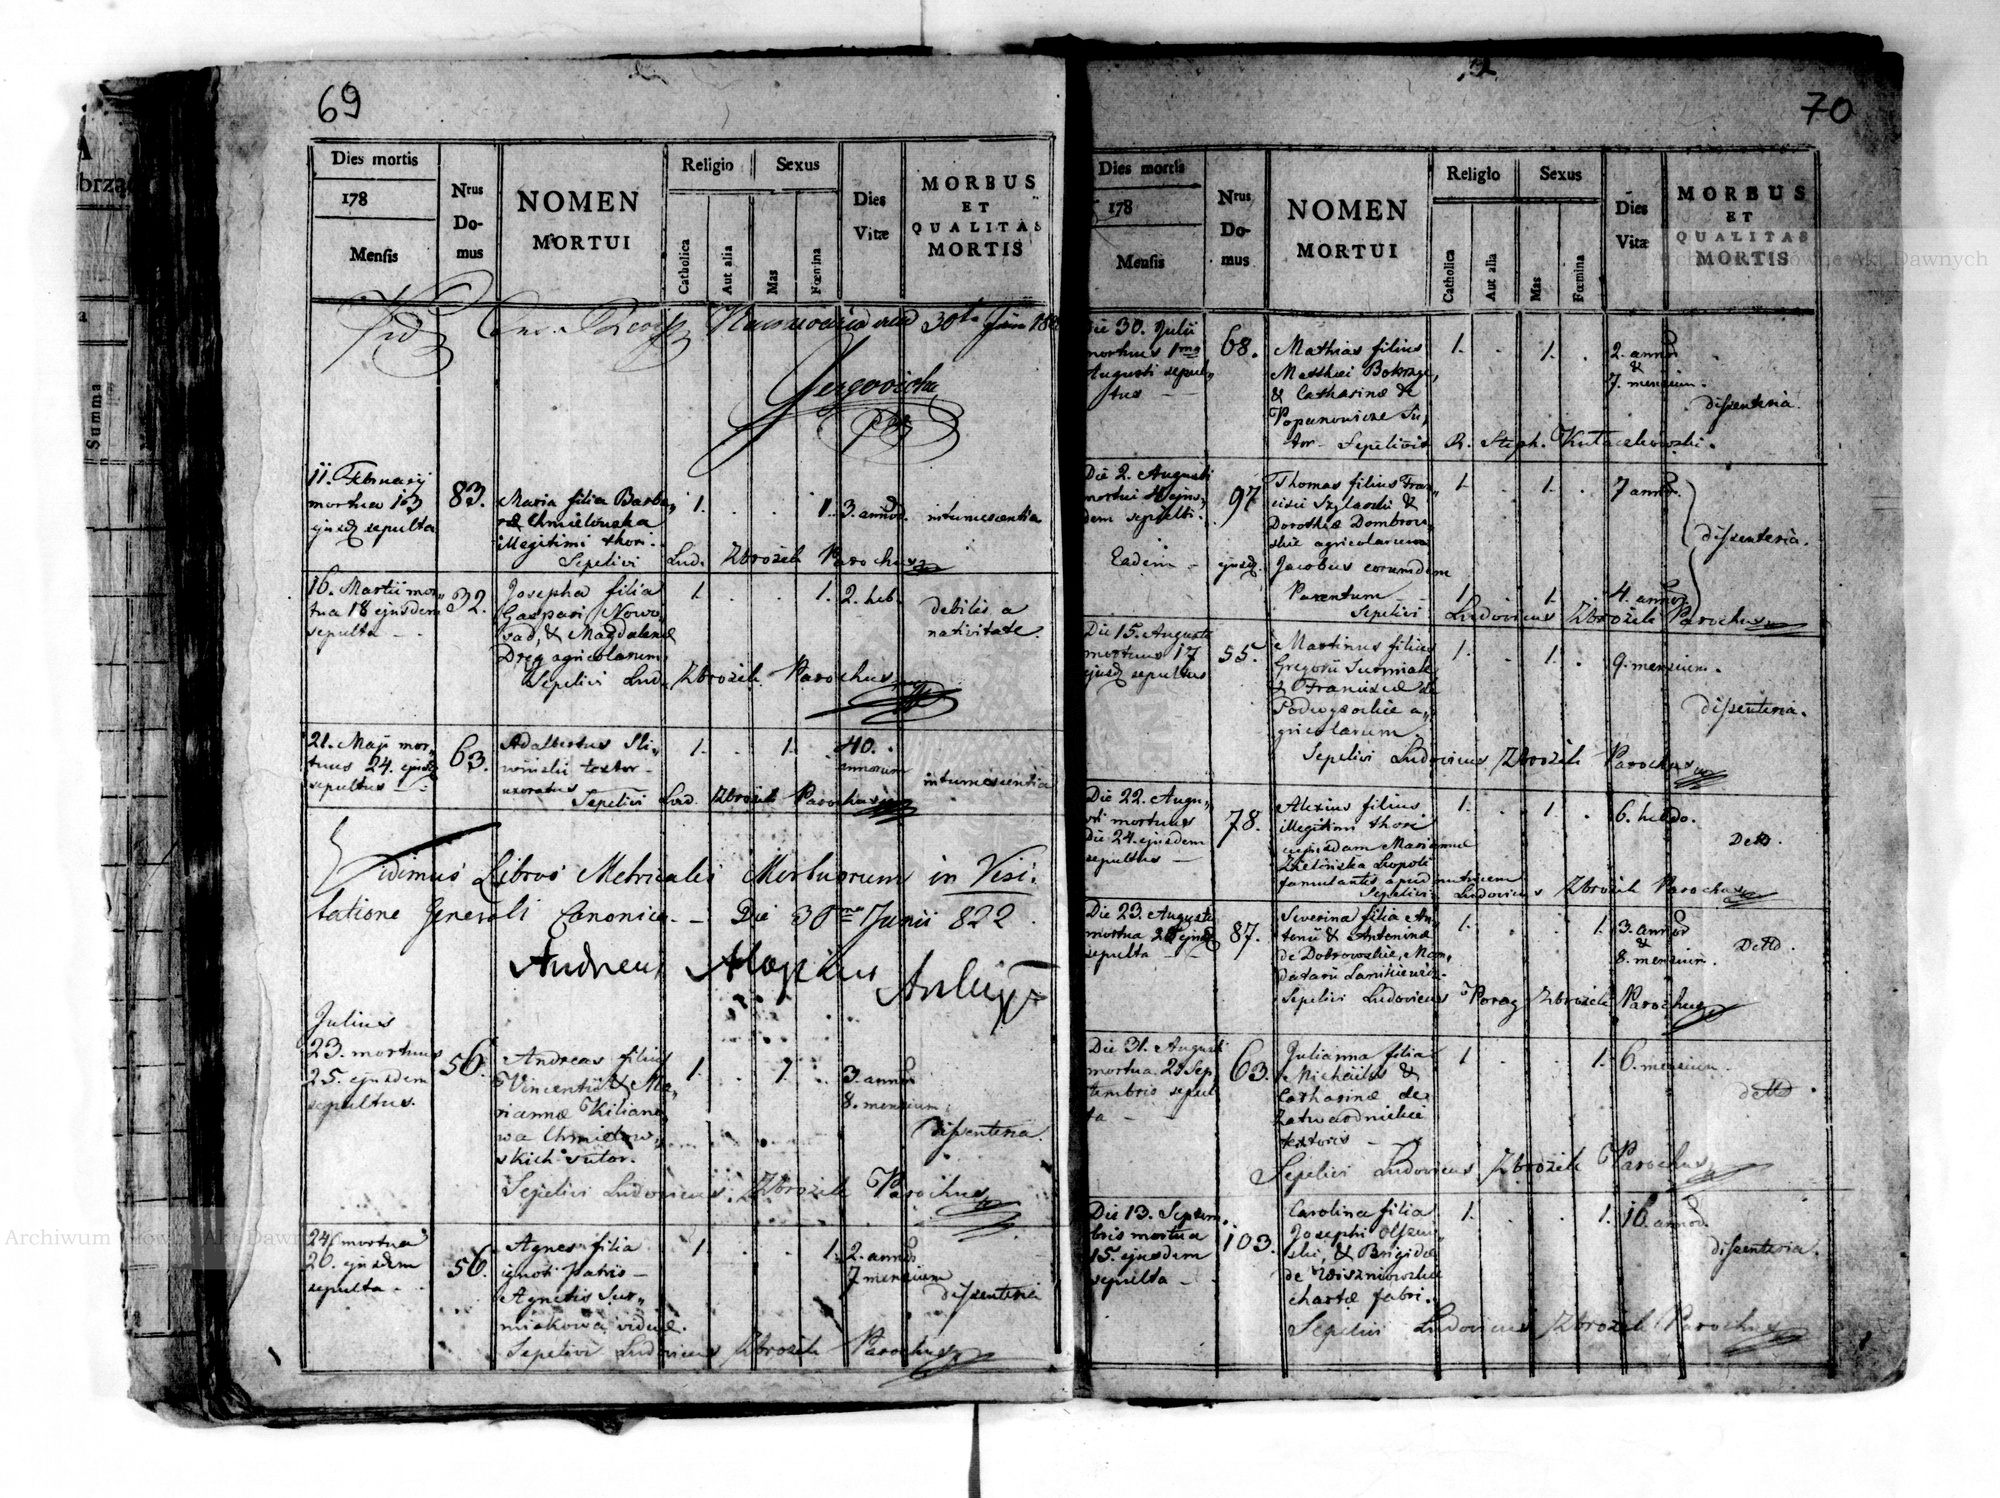 69
Dies mortis
178
Mensis
Nrus Domus
NOMEN
MORTUI
Religio
Catholica
Aut alia
Sexus
Mas
Fœmina
Dies Vitæ
MORBUS
ET
QUALITAS
MORTIS
30ta
11. Februarij
mortua 13
ejusd sepulta
83.
Maria filia Barba„
ræ Chmielowska
illegitimi thori.
1. . . 1. 3. annor.
intumescentia
Sepelivi Lud. Zbrożek Parochus
16. Martii mor„
tua 18 ejusdem
sepulta
32.
Josepha filia
Gaspari Nowo
sad, & Magdalenæ
Dręg agricolarum
1. . . 1. 2. heb.
debilis a
nativitate.
Sepelivi Lud. Zbrożek Parochus
21. Maji mor„
tuus 24. ejusd
sepultus
63.
Adalbertus Sli„
winski textor
uxoratus
1. . 1. 40.
annorum
intumescentia
Sepelivi Lud. Zbrożek Parochus
Vidimus Libros Metricales Mortuorum in Visi„
tatione Generali Canonica — Die 30ma Junii 822
Andreas Aloysius
Julius
23. mortuus
25. ejusdem
sepultus.
56.
Andreas filius
Vincentii & Ma„
riannæ Kiliano„
wa Chmielow„
skich sutor.
1. . 1. .
3. annor
8. mensium
dissenteria.
Sepelivi Ludovicus Zbrożek Parochus
24 mortua
26. ejusdem
sepulta
56.
Agnes filia
ignoti patris
Agnetis Sur„
miakowa viduæ.
1. . . 1.
2. annor
7 mensium
dissenteria
Sepelivi Ludovicus Zbrożek Parochus
70
Dies mortis
178
Mensis
Nrus Domus
NOMEN
MORTUI
Religio
Catholica
Aut alia
Sexus
Mas
Fœmina
Dies Vitæ
MORBUS
ET
QUALITAS
MORTIS
Die 30. Julii
mortuus 1ma
Augusti sepul„
tus
68.
Mathias filius
Matthæi
& Catharinæ de
1. . 1. .
2. annor
&
7. mensium.
dissenteria.
Sepelivit R. Steph.
Die 2. Augusti
mortui 4 ejus„
dem sepulti.
97
Thomas filius Fran„
cisci Szylarski &
Dorotheæ Dombrow„
skie agricolarum
1. . 1. . 7 annor.
dissenteria.
Eadem
ejusd.
Jacobus eorumdem
Parentum
1. . 1. . 4. annor
Sepelivi Ludovicus Zbrożek Parochus
Die 15. Augusti
mortuus 17
ejusd sepultus
55.
Martinus filius
Gregorii Surmiak
& Franciscæ de
Podwysockie a„
gricolarum
1. . 1. . 9. mensium.
dissenteria.
Sepelivi Ludovicus Zbrożek Parochus
Die 22. Augu„
sti mortuus
Die 24. ejusdem
sepultus
78.
Alexius filius
illegitimi thori
cujusdam Mariannæ
Zielinska Leopoli
famulantis apud nutricem
1. . 1. . 6. hebdo.
Detto.
Sepelivi Ludovicus Zbrożek Parochus
Die 23. Augusti
mortua 25 ejusd
sepulta
87.
Severina filia An„
tonii & Antoninæ
de Dobrowskie, Man„
datarii
1. . . 1. 3. annor
&
8. mensium.
Detto.
Sepelivi Ludovicus Poray Zbrożek Parochus
Die 31. Augusti
mortua. 2. Sep
tembris sepul
ta
63.
Julianna filia
Michaelis &
Catharinæ de
Zatwardnickie
textoris
1. . . 1. 6. mensium.
detto.
Sepelivi Ludovicus Zbrożek Parochus
Die 13. Septem„
bris mortua
15. ejusdem
sepulta
103.
Carolina filia
Josephi Olszew„
ski, & Brigidæ
de Wiszniowskie
chartæ fabri.
1. . . 1. 16. annor.
dissenteria.
Sepelivi Ludovicus Zbrożek Parochus
Summa
Archiwum Główne Akt Dawnych
Archiwum Główne Akt Dawnych